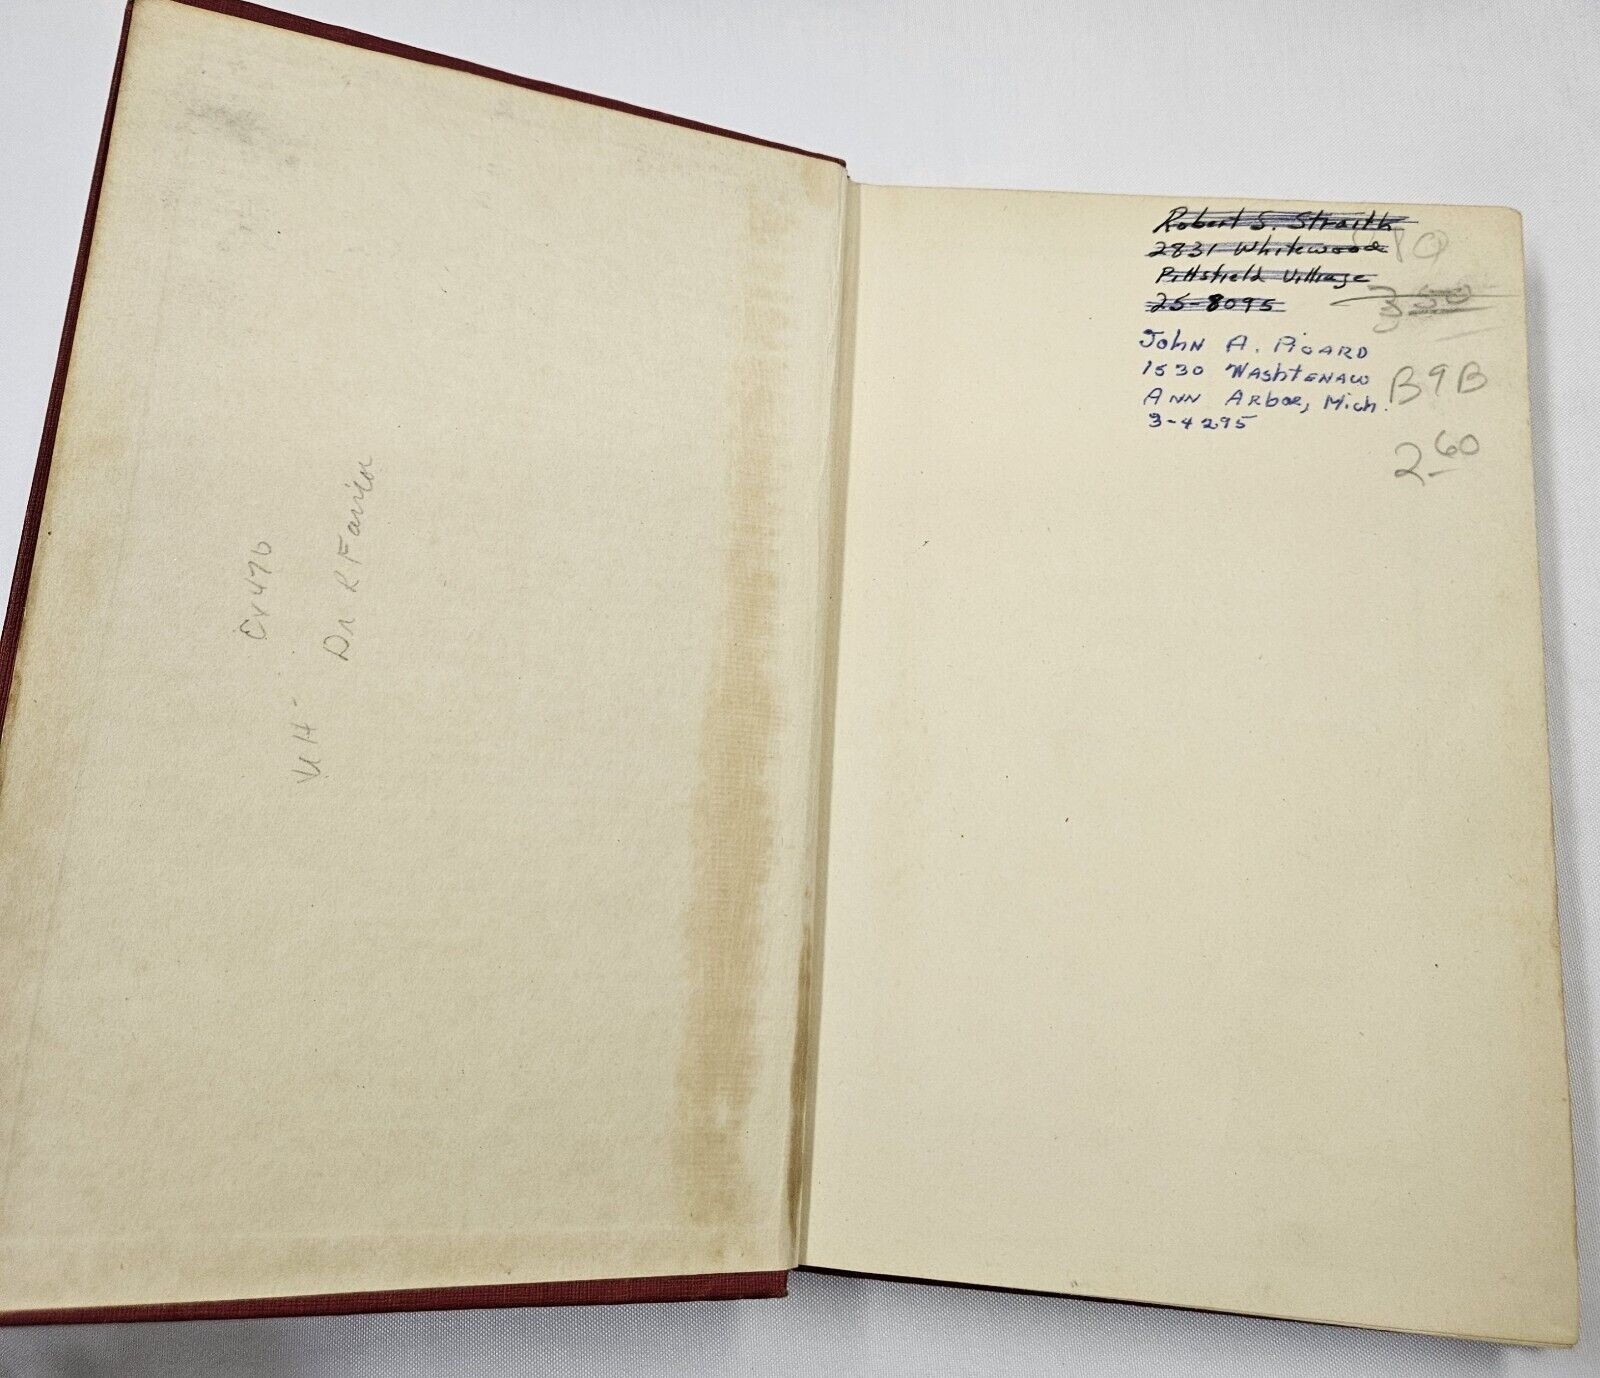 Ex 476
Dr R Farrior
UH -
Robert S. Straith
2831 Whitewood
Pittsfield Village
25-8095
350
John A. Picard
1530 Washtenaw
Ann Arbor, Mich.
3-4295
B9B
2.60